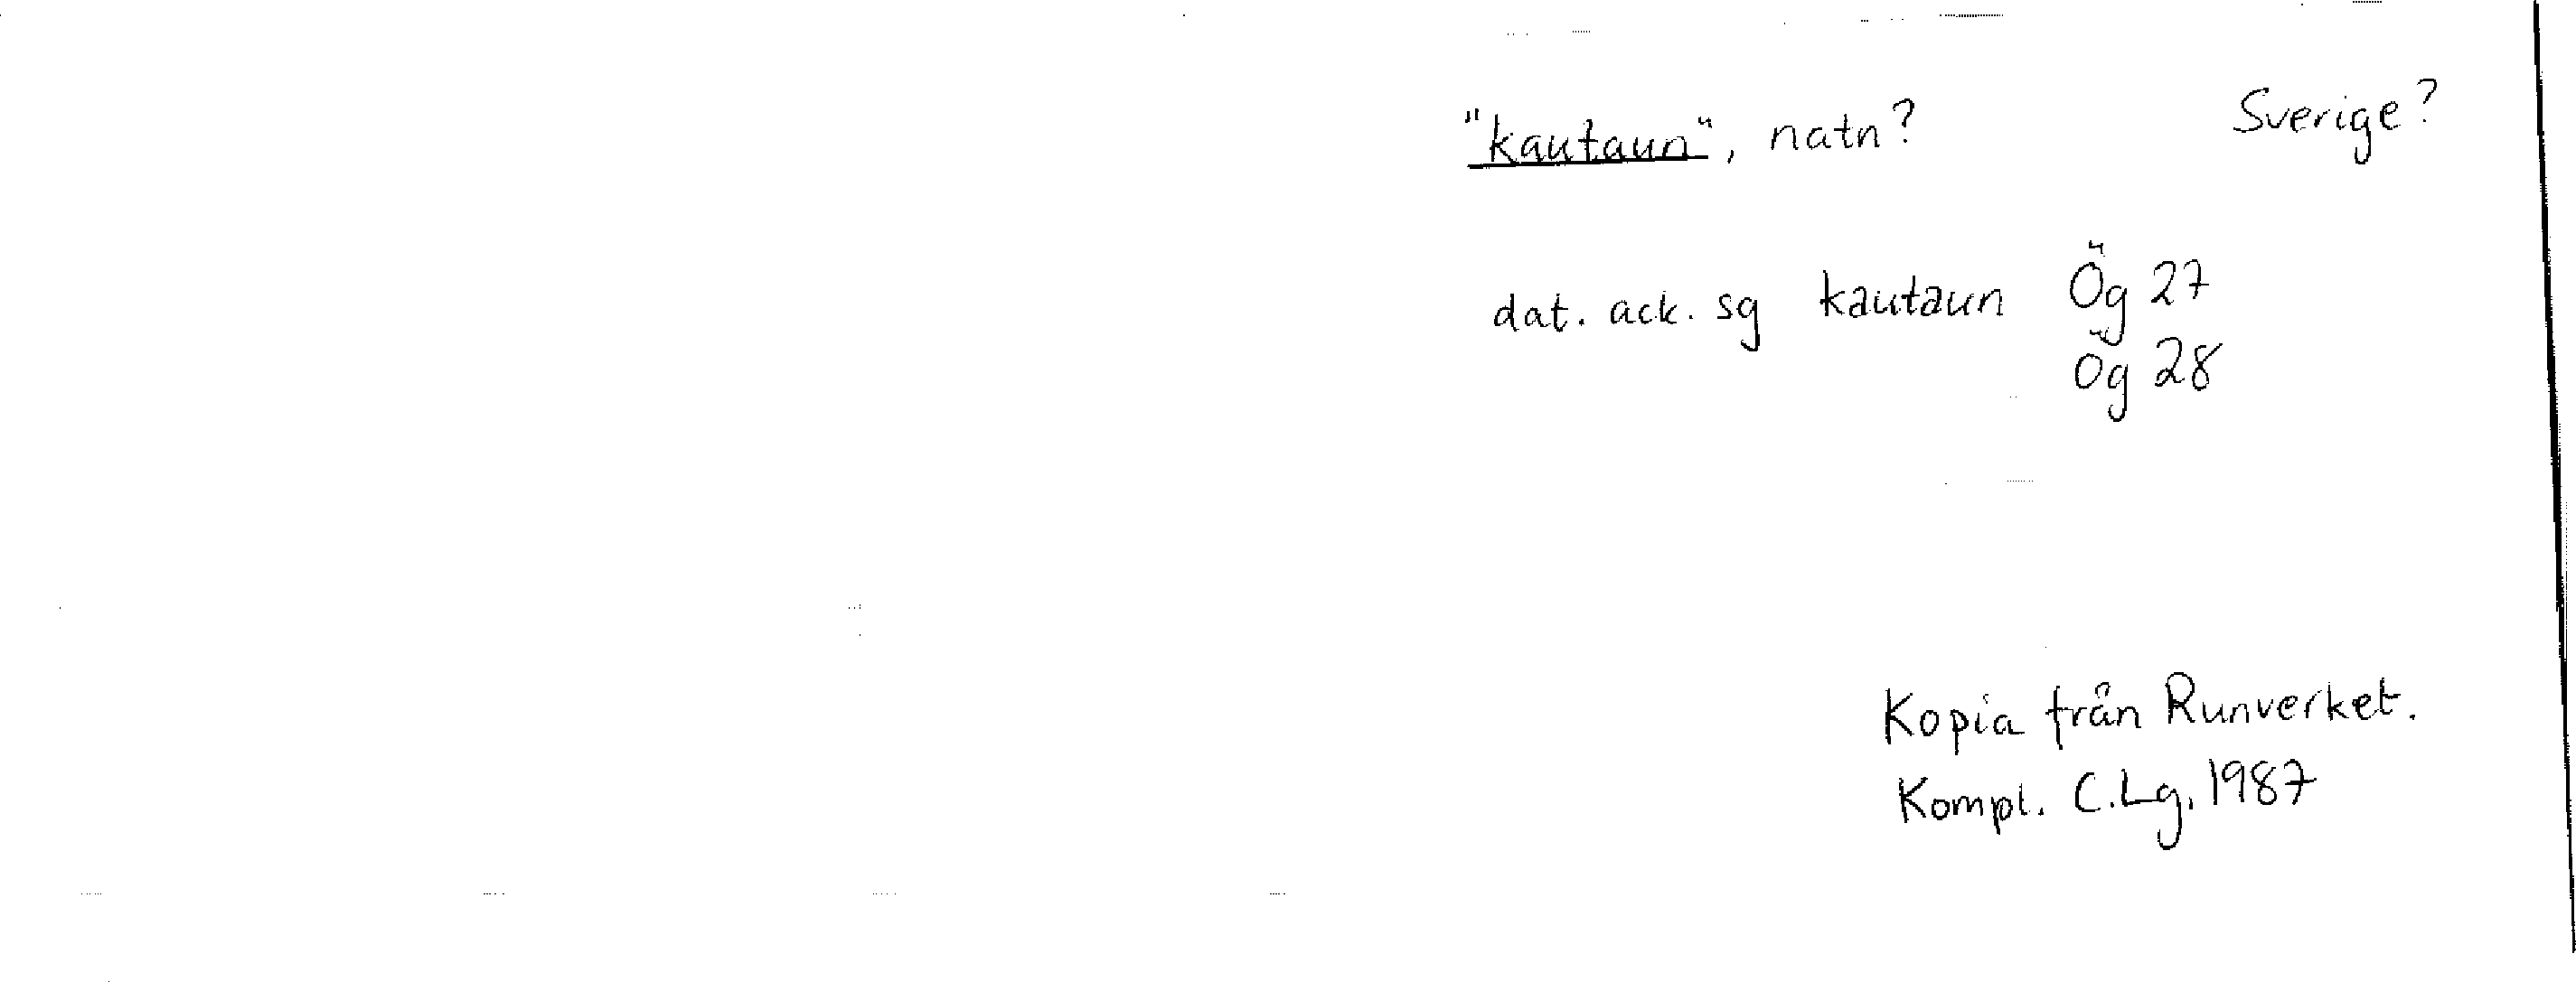 "kautaun", natn? Sverige?
dat. ack. sg kautaun Ög 27
Ög 28
Kopia från Runverket.
Kompl. C.Lg. 1987